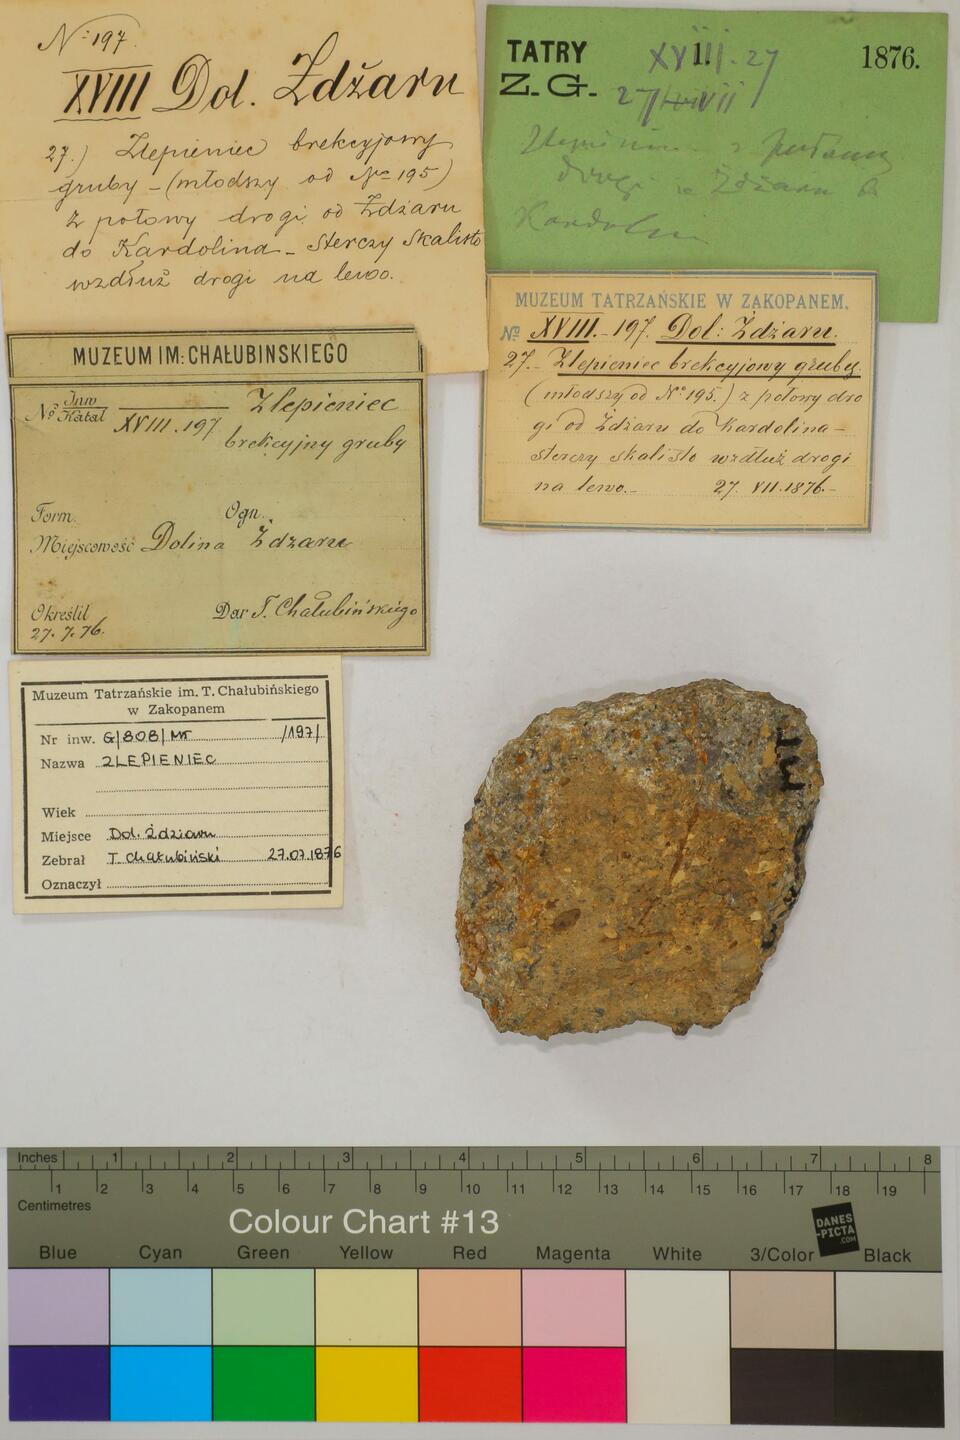 No 197.
XVIII Dol. Ždžaru
27.) Zlepieniec brekcyjowy
gruby – (młodszy od No 195)
z połowy drogi od Ždżaru
do Kardolina – sterczy skalisto
wzdłuż drogi na lewo.
TATRY 1. 1876.
Z. G.
XVIII. 27
27/VII
drogi Ždžaru
MUZEUM TATRZAŃSKIE W ZAKOPANEM.
No XVIII. – 197. Dol: Żdżaru.
27. – Zlepieniec brekcyjowy gruby.
(młodszy od No 195.) z połowy dro
gi od Żdżaru do Kardolina –
sterczy skalisto wzdłuż drogi
na lewo. – 27. VII. 1876. –
MUZEUM IM: CHAŁUBINSKIEGO
No Inw Katal XVIII. 197 Zlepieniec
brekcyjny gruby
Form. Ogn.
Miejscowość Dolina Żdżaru
Określił Dar T. Chałubińskiego
27. 7. 76.
Muzeum Tatrzańskie im. T. Chałubińskiego
w Zakopanem
Nr inw. G/808/MT /197/
Nazwa ZLEPIENIEC
Wiek
Miejsce Dol. Ździaru
Zebrał T. Chałubiński 27.07.1876
Oznaczył
Inches 1 2 3 4 5 6 7 8
1 2 3 4 5 6 7 8 9 10 11 12 13 14 15 16 17 18 19
Centimetres
Colour Chart #13
DANES
-PICTA
.COM
Blue Cyan Green Yellow Red Magenta White 3/Color Black